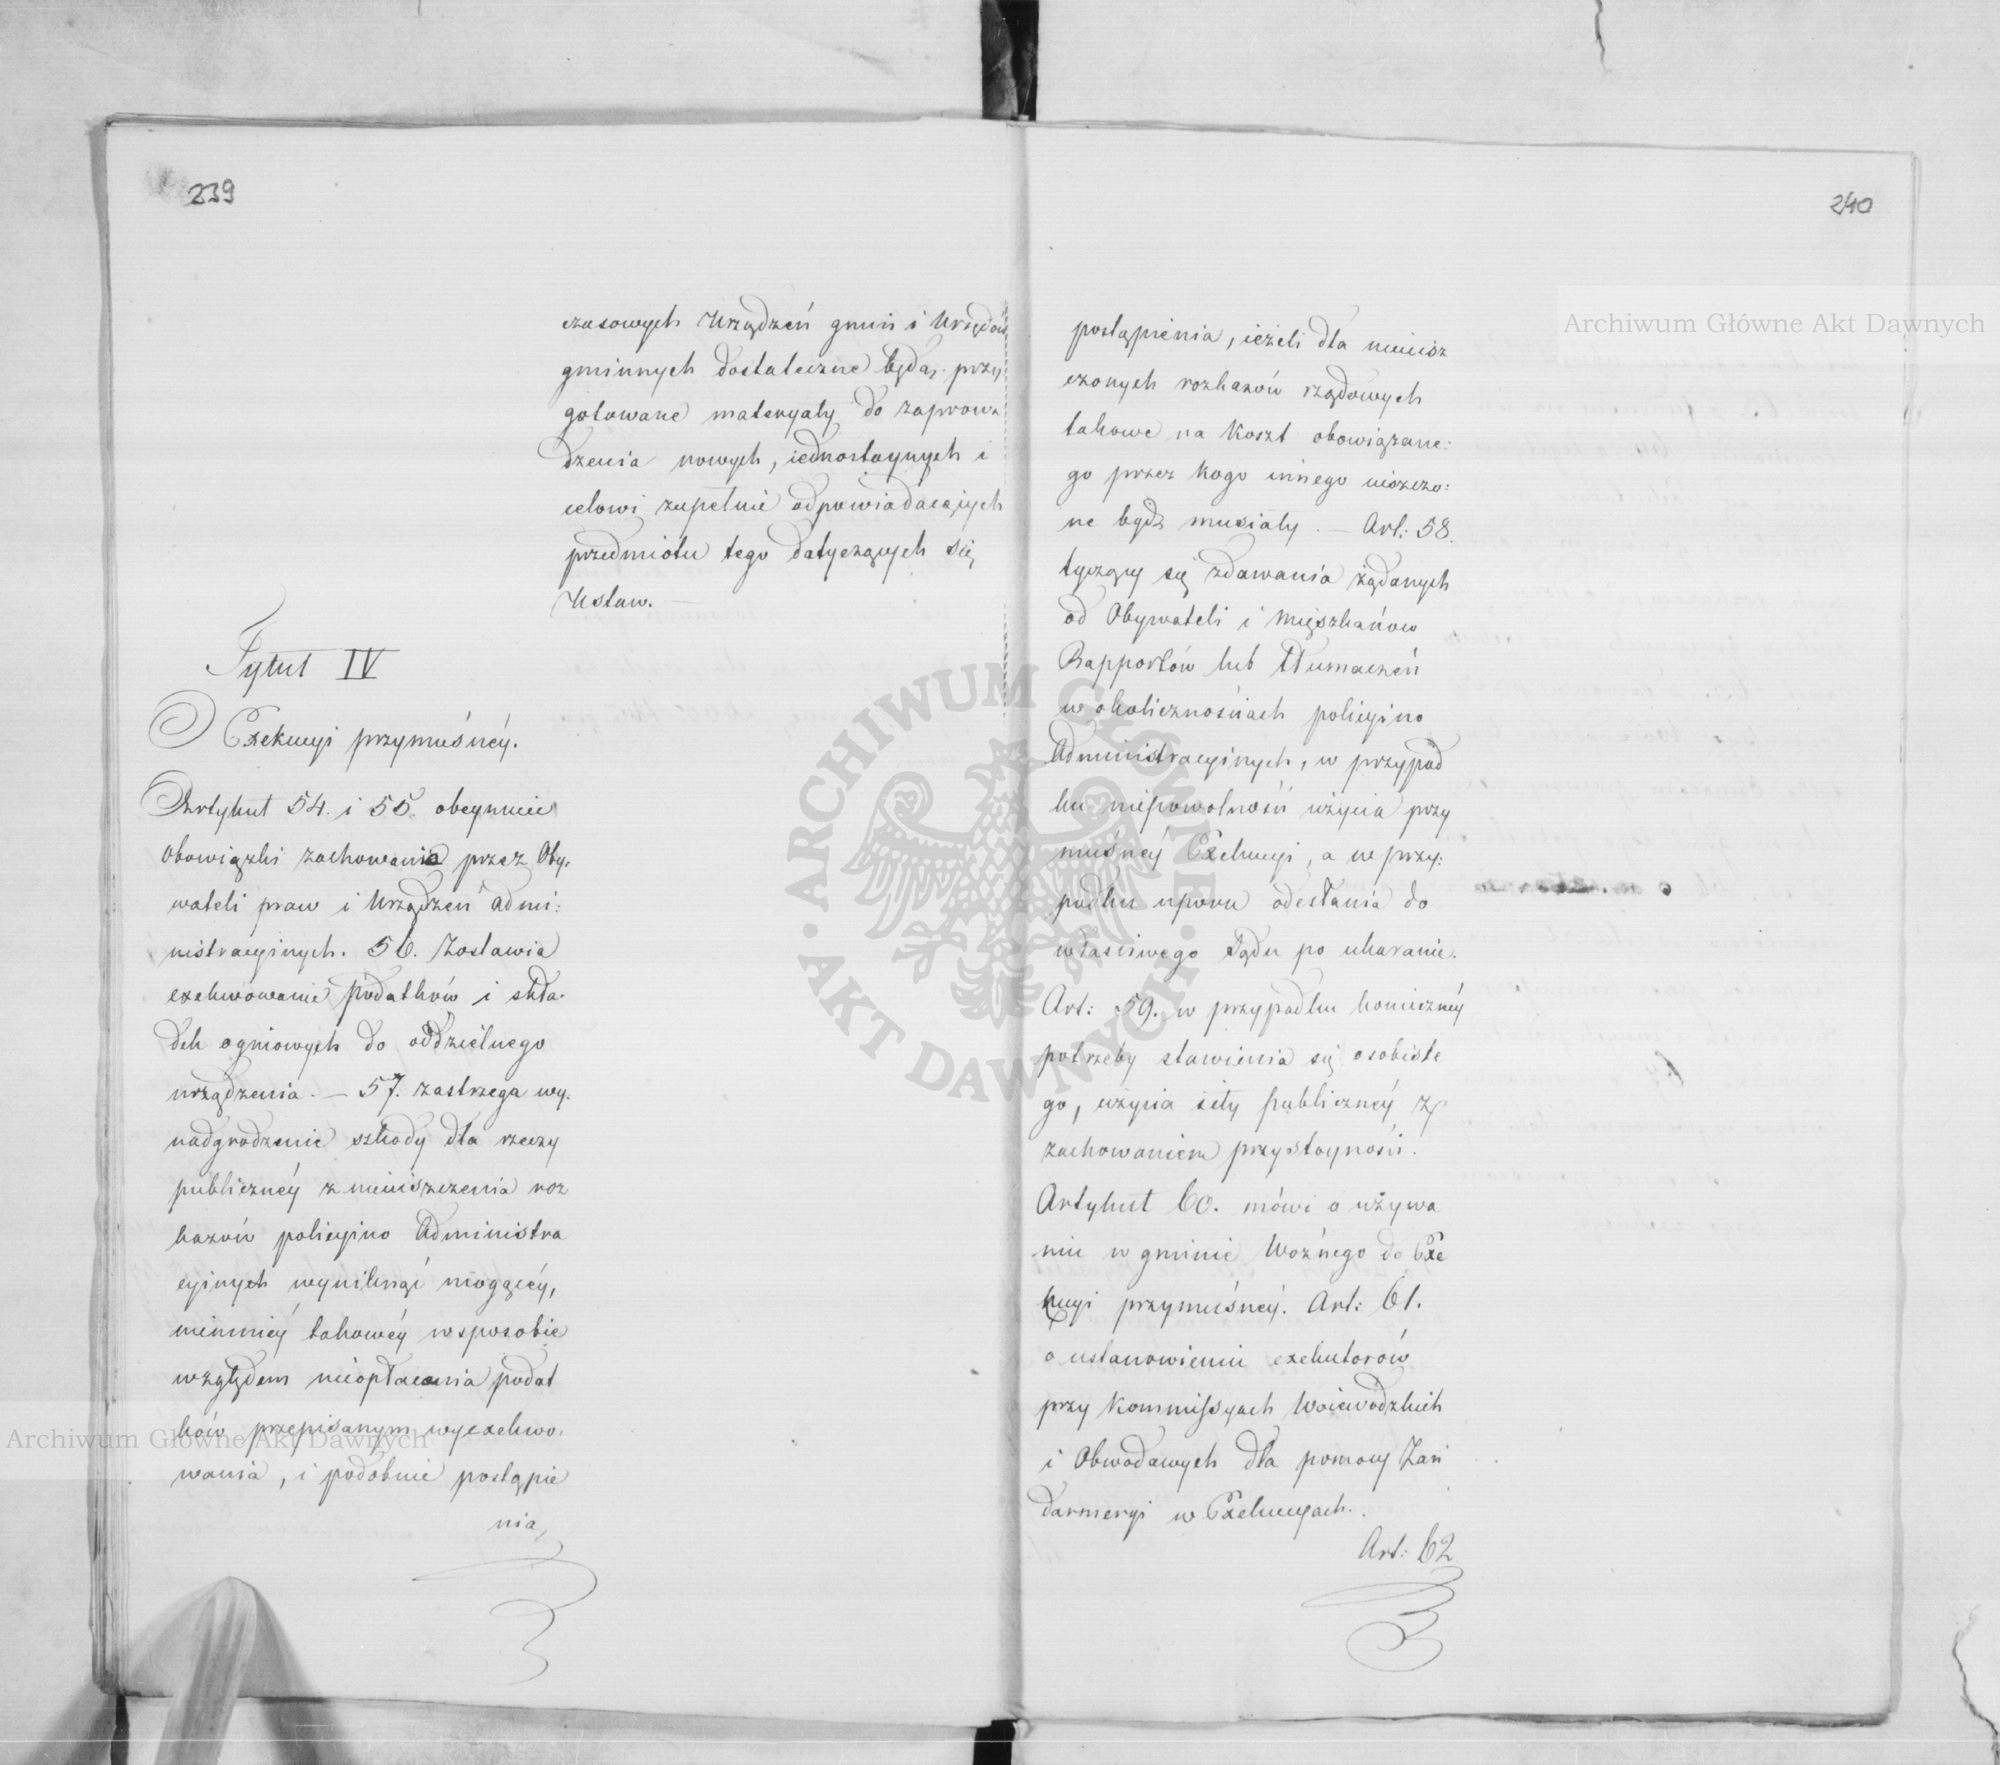 239
czasowych Urządzeń gmin i Urzędów
gminnych dostateczne będą przy
gotowane materyały do zaprowa
dzenia nowych, iednostaynych i
celowi zupełnie odpowiadaiących
przedmiotu tego datyczących się
Ustaw. —
Tytuł IV
O Exekucyi przymuśnéy.
Artykuł 54. i 55. obeymuie
Obowiązki zachowania przez Oby:
wateli praw i Urządzeń Admi:
nistracyinych. 56. Zostawia
exekwowanie podatków i skła:
dek ogniowych do oddzielnego
urządzenia. — 57. zastrzega wy:
nadgrodzenie szkody dla rzeczy
publicznéy z nieuiszczenia roz
kazów policyino Administra
cyinych wyniknąć mogącéy,
niemniéy takowéy w sposobie
względem nieopłacania podat
ków przepisanym wyexekwo:
wania, i podobnie postąpie
nia,
240
postąpienia, ieżeli dla nieuisz
czonych rozkazów rządowych
takowe na koszt obowiązane:
go przez kogo innego uiszczo:
ne bydź musiały. — Art: 58.
tyczący się zdawania żądanych
od Obywateli i Mięszkańców
Rapportów lub tłumaczeń
w okolicznościach policyino
Administracyinych, w przypad
ku niepowolności użycia przy
muśnéy Exekucyi, a w przy:
padku uporu odesłania do
właściwego Sądu po ukaranie.
Art: 59. w przypadku koniecznéy
potrzeby stawienia się osobiste
go, użycia siły publicznéy z
zachowaniem przystoyności.
Artykuł 60. mówi o używa
niu w gminie Woźnego do Exe
kucyi przymuśnéy. Art: 61.
o ustanowieniu exekutorów
przy Kommissyach Woiewódzkich
i Obwodowych dla pomocy Żan
darmeryi w Exekucyach.
Art: 62.
Archiwum Główne Akt Dawnych
Archiwum Główne Akt Dawnych
ARCHIWUM GŁÓWNE · AKT DAWNYCH ·